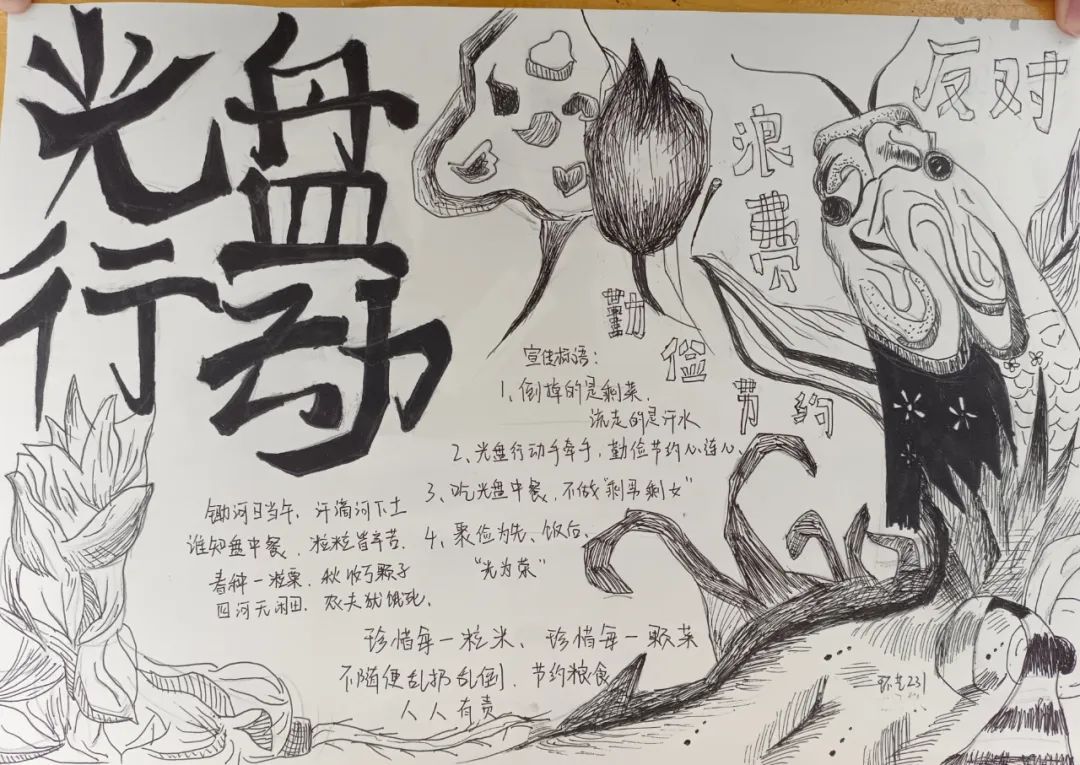 光盘
行动
反对
浪费
勤俭节约
宣传标语：
1、倒掉的是剩菜、
流走的是汗水
2、光盘行动手牵手，勤俭节约心连心、
3、吃光盘中餐、不做“剩男剩女”
4、聚俭为先、饭后、
“光为荣”
锄河日当午、汗滴河下土
谁知盘中餐、粒粒皆辛苦.
春种一粒粟、秋收万颗子
四河无闲田、农夫犹饿死、
珍惜每一粒米、珍惜每一颗菜
不随便乱扔乱倒、节约粮食
人人有责
环艺231